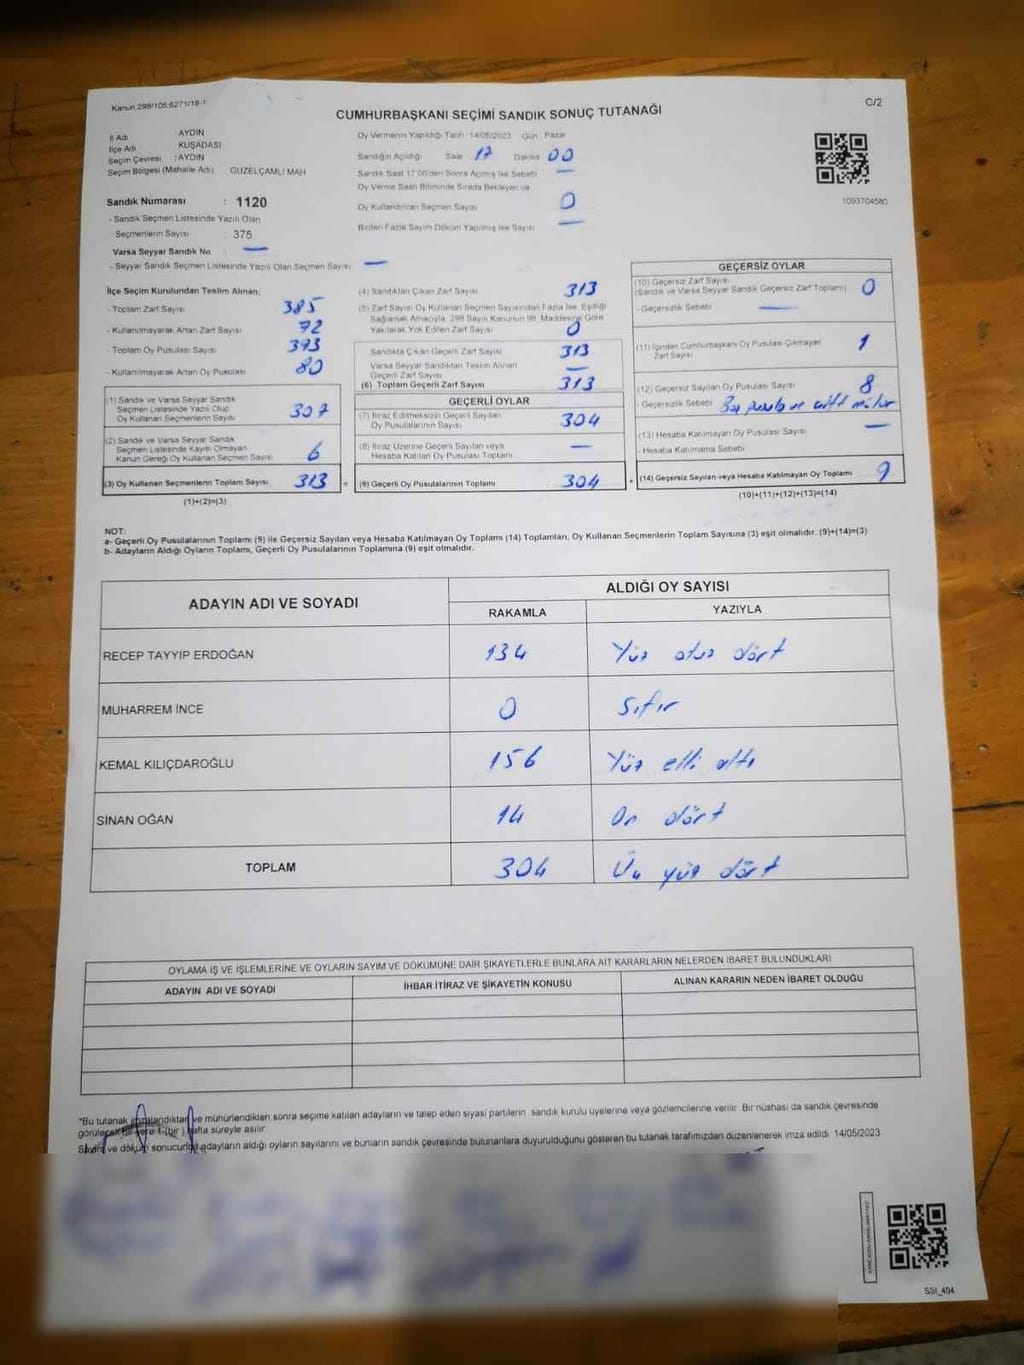 Kanun:298/105;6271/18-1
C/2
CUMHURBAŞKANI SEÇİMİ SANDIK SONUÇ TUTANAĞI
İl Adı AYDIN
İlçe Adı KUŞADASI
Seçim Çevresi : AYDIN
Seçim Bölgesi (Mahalle Adı) GÜZELÇAMLI MAH
Sandık Numarası : 1120
- Sandık Seçmen Listesinde Yazılı Olan
Seçmenlerin Sayısı : 375
Varsa Seyyar Sandık No —
- Seyyar Sandık Seçmen Listesinde Yazılı Olan Seçmen Sayısı : —
Oy Vermenin Yapıldığı Tarih 14/05/2023 Gün Pazar
Sandığın Açıldığı Saat 17 Dakika 00
Sandık Saat 17:00'den Sonra Açılmış İse Sebebi —
Oy Verme Saati Bitiminde Sırada Bekleyen ve
Oy Kullandırılan Seçmen Sayısı 0
Birden Fazla Sayım Döküm Yapılmış İse Sayısı —
1093704580
İlçe Seçim Kurulundan Teslim Alınan:
- Toplam Zarf Sayısı 385
- Kullanılmayarak Artan Zarf Sayısı 72
- Toplam Oy Pusulası Sayısı 393
- Kullanılmayarak Artan Oy Pusulası 80
(1) Sandık ve Varsa Seyyar Sandık
Seçmen Listesinde Yazılı Olup
Oy Kullanan Seçmenlerin Sayısı 307
(2) Sandık ve Varsa Seyyar Sandık
Seçmen Listesinde Kayıtlı Olmayan
Kanun Gereği Oy Kullanan Seçmen Sayısı 6
(3) Oy Kullanan Seçmenlerin Toplam Sayısı 313 =
(1)+(2)=(3)
(4) Sandıktan Çıkan Zarf Sayısı 313
(5) Zarf Sayısı Oy Kullanan Seçmen Sayısından Fazla İse, Eşitliği
Sağlamak Amacıyla, 298 Sayılı Kanunun 98. Maddesine Göre
Yakılarak Yok Edilen Zarf Sayısı 0
Sandıkta Çıkan Geçerli Zarf Sayısı 313
Varsa Seyyar Sandıktan Teslim Alınan
Geçerli Zarf Sayısı —
(6) Toplam Geçerli Zarf Sayısı 313
GEÇERLİ OYLAR
(7) İtiraz Edilmeksizin Geçerli Sayılan
Oy Pusulalarının Sayısı 304
(8) İtiraz Üzerine Geçerli Sayılan veya
Hesaba Katılan Oy Pusulası Toplamı —
(9) Geçerli Oy Pusulalarının Toplamı 304 +
GEÇERSİZ OYLAR
(10) Geçersiz Zarf Sayısı
(Sandık ve Varsa Seyyar Sandık Geçersiz Zarf Toplamı) 0
- Geçersizlik Sebebi —
(11) İçinden Cumhurbaşkanı Oy Pusulası Çıkmayan
Zarf Sayısı 1
(12) Geçersiz Sayılan Oy Pusulası Sayısı 8
- Geçersizlik Sebebi Boş pusula ve çift mühür
(13) Hesaba Katılmayan Oy Pusulası Sayısı —
- Hesaba Katılmama Sebebi
(14) Geçersiz Sayılan veya Hesaba Katılmayan Oy Toplamı 9
(10)+(11)+(12)+(13)=(14)
NOT:
a- Geçerli Oy Pusulalarının Toplamı (9) ile Geçersiz Sayılan veya Hesaba Katılmayan Oy Toplamı (14) Toplamları, Oy Kullanan Seçmenlerin Toplam Sayısına (3) eşit olmalıdır. (9)+(14)=(3)
b- Adayların Aldığı Oyların Toplamı, Geçerli Oy Pusulalarının Toplamına (9) eşit olmalıdır.
ADAYIN ADI VE SOYADI
ALDIĞI OY SAYISI
RAKAMLA YAZIYLA
RECEP TAYYİP ERDOĞAN 134 Yüz otuz dört
MUHARREM İNCE 0 Sıfır
KEMAL KILIÇDAROĞLU 156 Yüz elli altı
SİNAN OĞAN 14 On dört
TOPLAM 304 Üç yüz dört
OYLAMA İŞ VE İŞLEMLERİNE VE OYLARIN SAYIM VE DÖKÜMÜNE DAİR ŞİKAYETLERLE BUNLARA AİT KARARLARIN NELERDEN İBARET BULUNDUKLARI
ADAYIN ADI VE SOYADI İHBAR İTİRAZ VE ŞİKAYETİN KONUSU ALINAN KARARIN NEDEN İBARET OLDUĞU
*Bu tutanak imzalandıktan ve mühürlendikten sonra seçime katılan adayların ve talep eden siyasi partilerin sandık kurulu üyelerine veya gözlemcilerine verilir. Bir nüshası da sandık çevresinde
görülecek bir yere 1 (bir) hafta süreyle asılır.
Sayım ve döküm sonucunda adayların aldığı oyların sayılarını ve bunların sandık çevresinde bulunanlara duyurulduğunu gösteren bu tutanak tarafımızdan düzenlenerek imza edildi. 14/05/2023
SSI_404